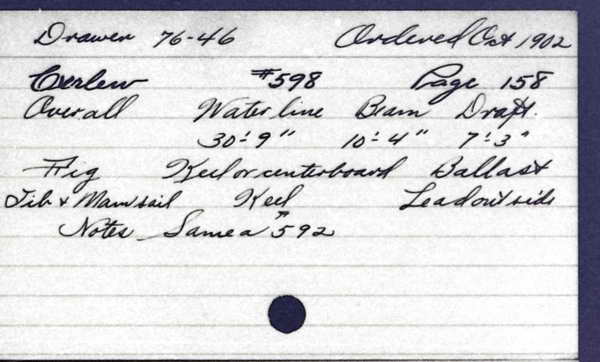 Drawer 76-46 Ordered Oct 1902
Cerlew #598 Page 158
Over all Water line Beam Draft.
30'-9" 10'-4" 7'-3"
Rig Keel or centerboard Ballast
Jib & Mainsail Keel Lead outside
Notes Same as #592